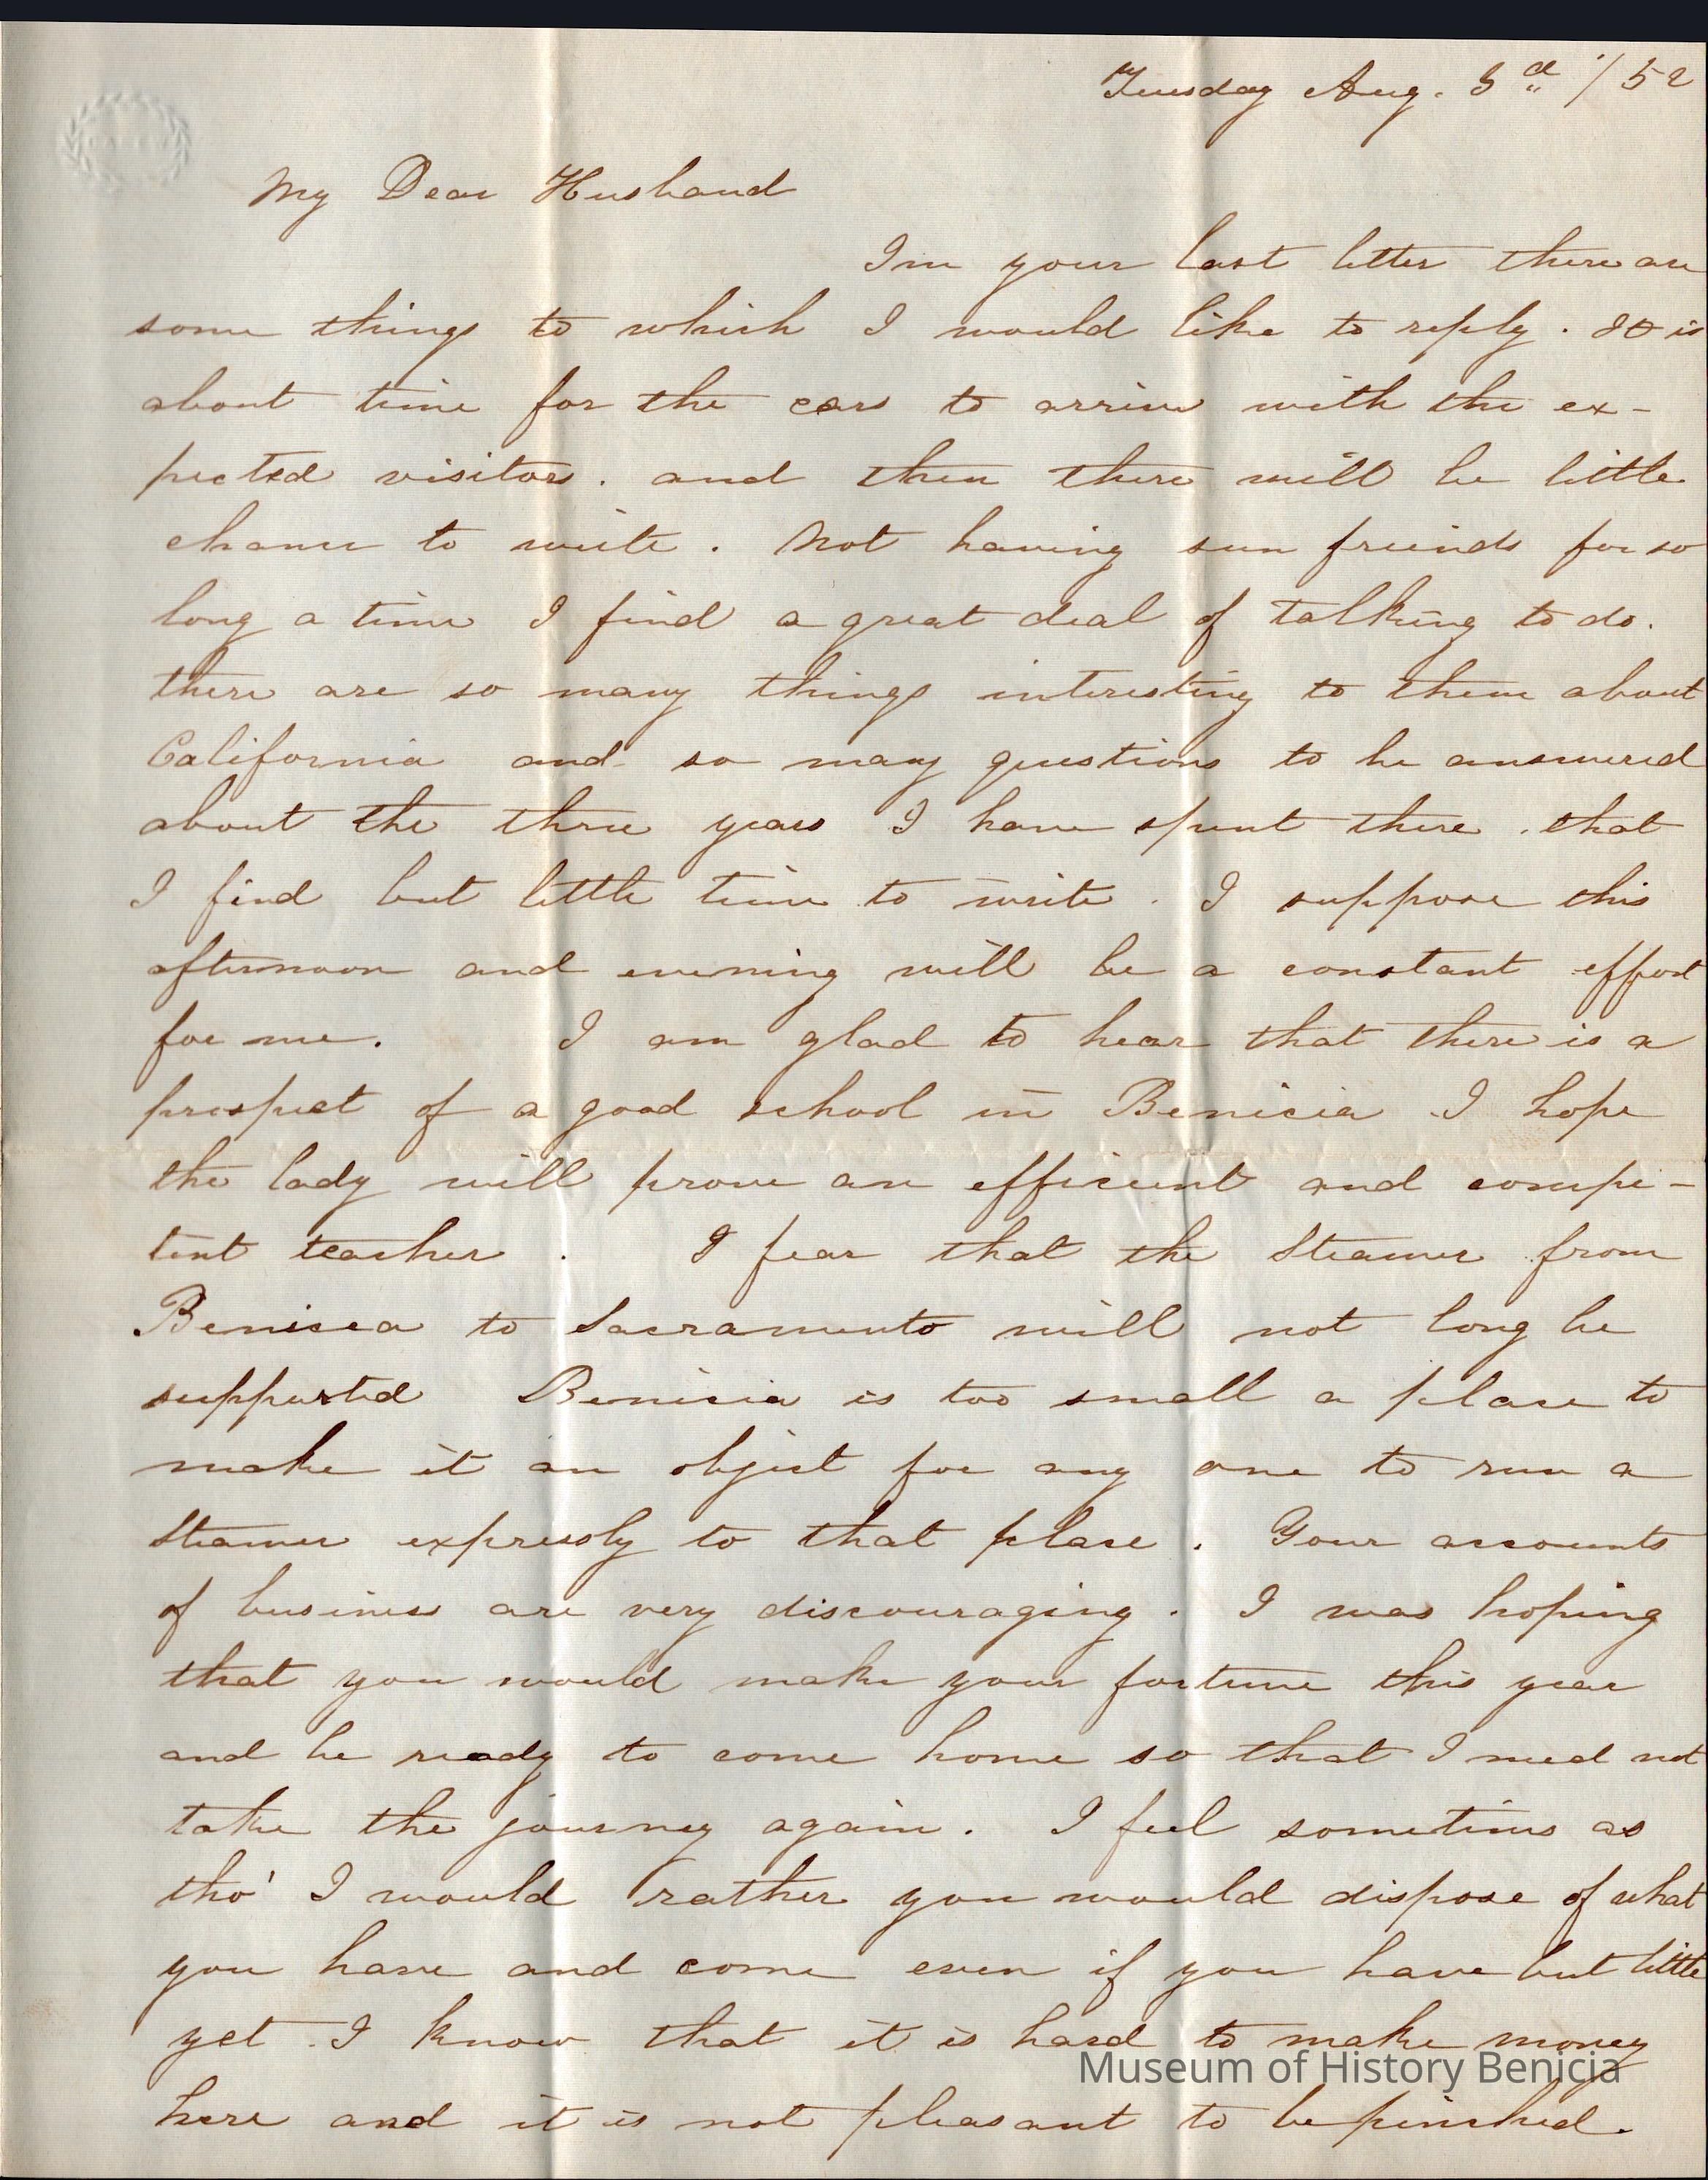 Tuesday Aug. 3d /52
My Dear Husband
In your last letter there are
some things to which I would like to reply. It is
about time for the cars to arrive with the ex-
pected visitors. and then there will be little
chance to write. Not having seen friends for so
long a time I find a great deal of talking to do.
there are so many things interesting to them about
California and so many questions to be answered
about the three years I have spent there. that
I find but little time to write. I suppose this
afternoon and evening will be a constant effort
for me. I am glad to hear that there is a
prospect of a good school in Benicia I hope
the lady will prove an efficient and compe-
tent teacher. I fear that the Steamer from
Benicia to Sacramento will not long be
supported Benicia is too small a place to
make it an object for any one to run a
Steamer expressly to that place. Your accounts
of business are very discouraging. I was hoping
that you would make your fortune this year
and be ready to come home so that I need not
take the journey again. I feel sometimes as
tho' I would rather you would dispose of what
you have and come even if you have but little
yet. I know that it is hard to make money
here and it is not pleasant to be pinched.
Museum of History Benicia